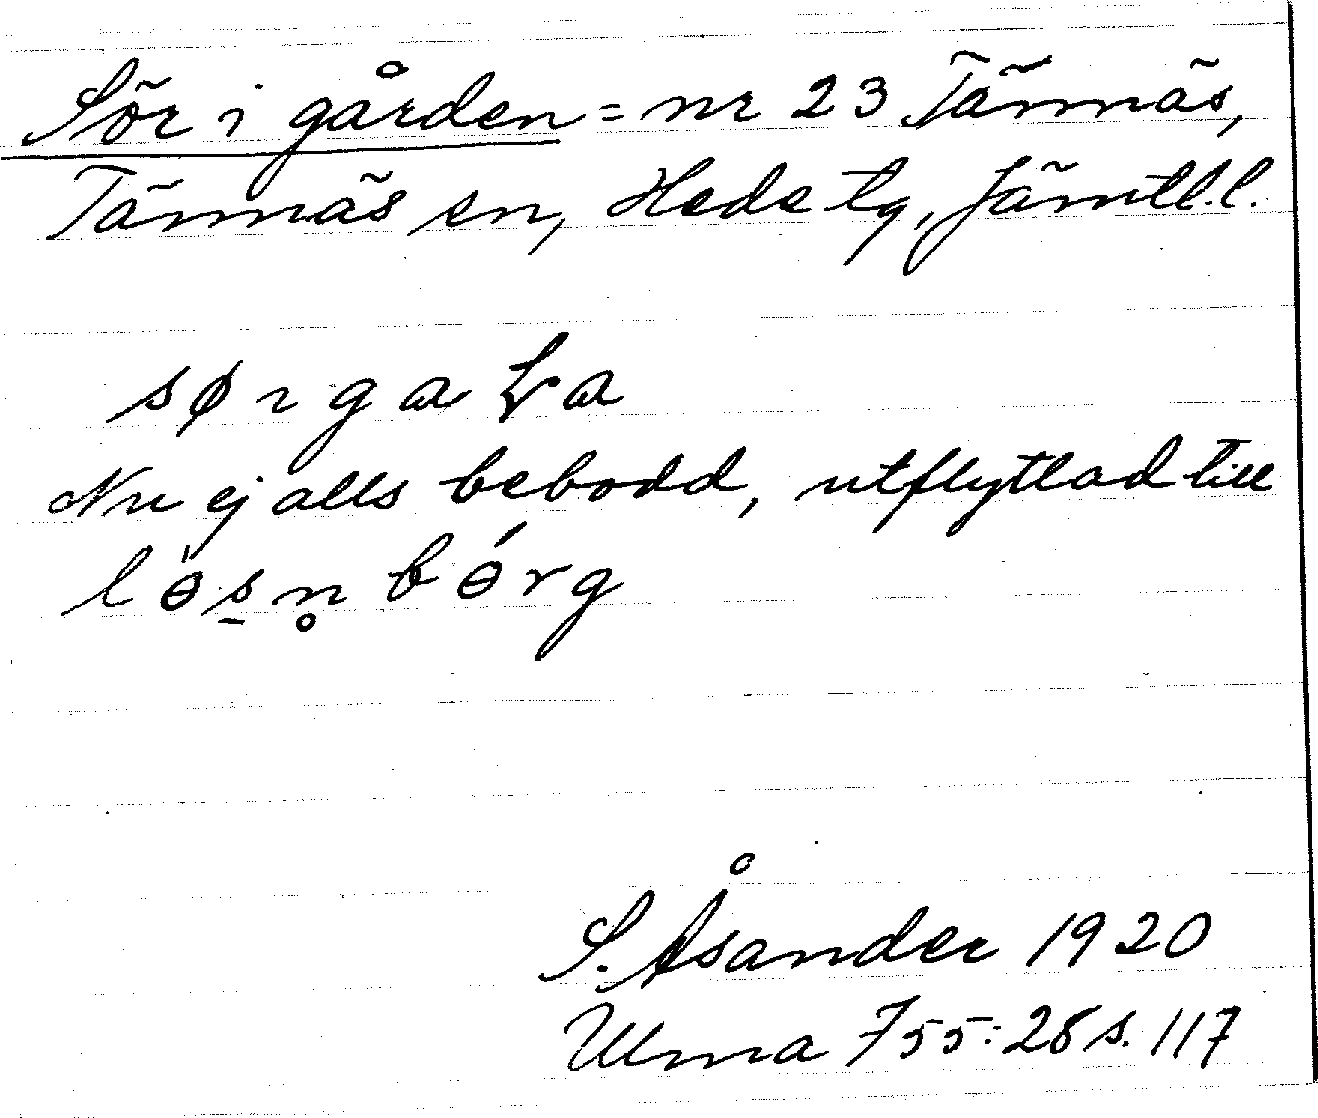 Sör i gården = nr 23 Tännäs,
Tännäs sn, Hede tg, Jämtl.l.
sørgaɽa
Nu ej alls bebodd, utflyttad till
lɵ̀s̠n̥bɵ́rg
S. Åsander 1920
Ulma 755:28 s. 117